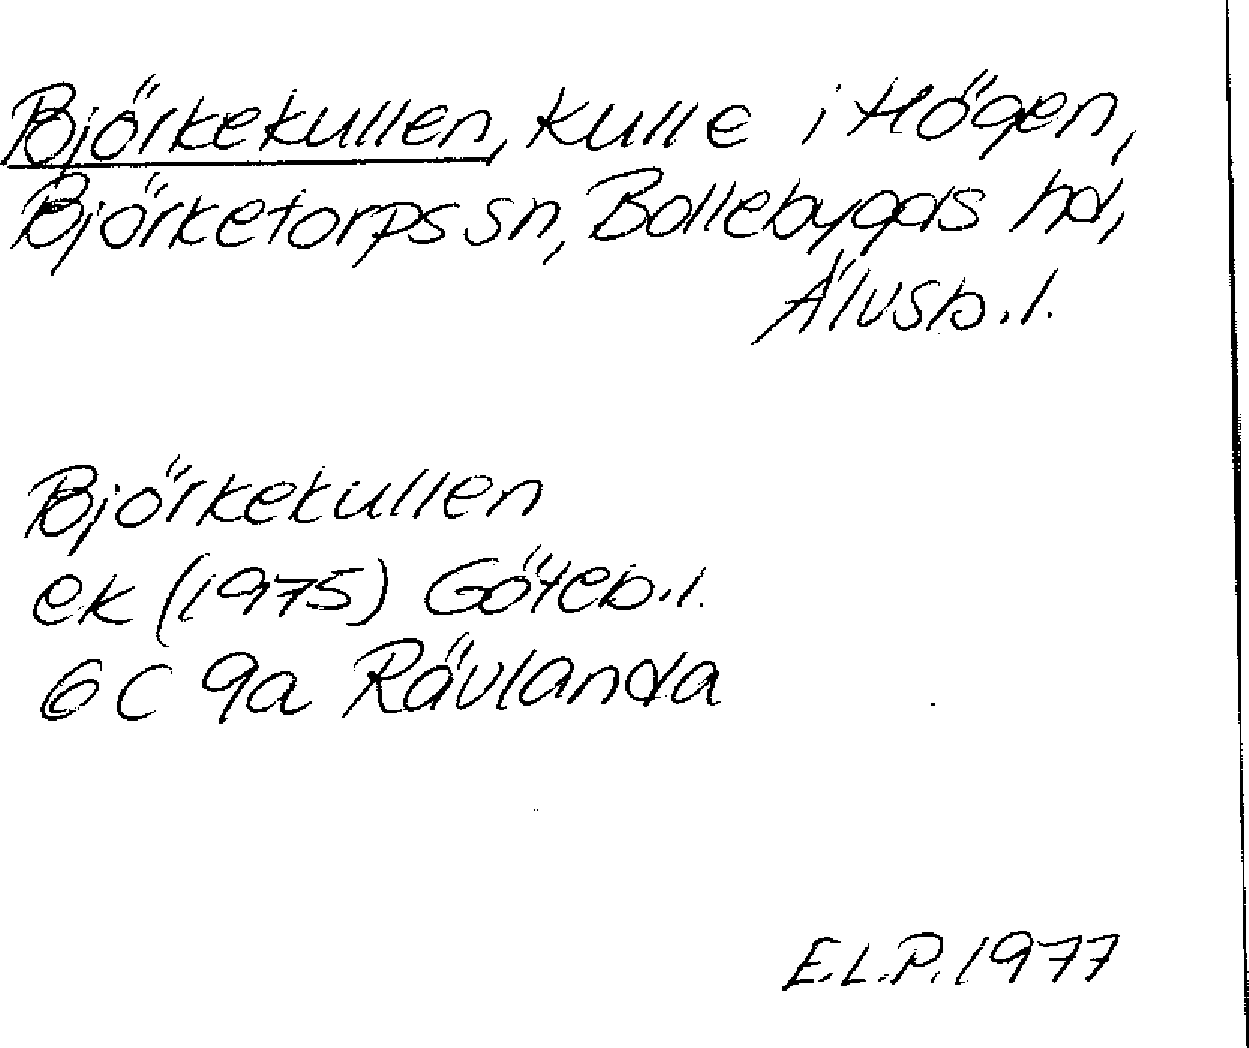 Björkekullen, kulle i Högen,
Björketorps sn, Bollebygds hd,
Älvsb. l.
Björkekullen
ek (1975) Göteb. l.
6C 9a Rävlanda
E.L.P. 1977